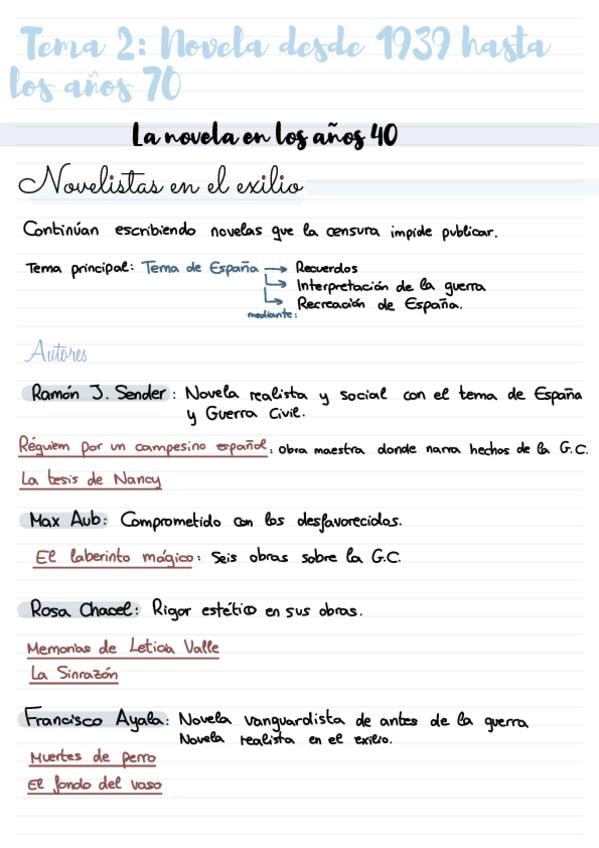 Tema 2: Novela desde 1939 hasta
los años 70
La novela en los años 40
Novelistas en el exilio
Continúan escribiendo novelas que la censura impide publicar.
Tema principal: Tema de España → Recuerdos
→ Interpretación de la guerra
→ Recreación de España.
mediante:
Autores
Ramón J. Sender: Novela realista y social con el tema de España
y Guerra Civil.
Réquiem por un campesino español, obra maestra donde narra hechos de la G.C.
La tesis de Nancy
Max Aub: Comprometido con los desfavorecidos.
El laberinto mágico: Seis obras sobre la G.C.
Rosa Chacel: Rigor estético en sus obras.
Memorias de Leticia Valle
La Sinrazón
Francisco Ayala: Novela vanguardista de antes de la guerra
Novela realista en el exilio.
Muertes de perro
El fondo del vaso